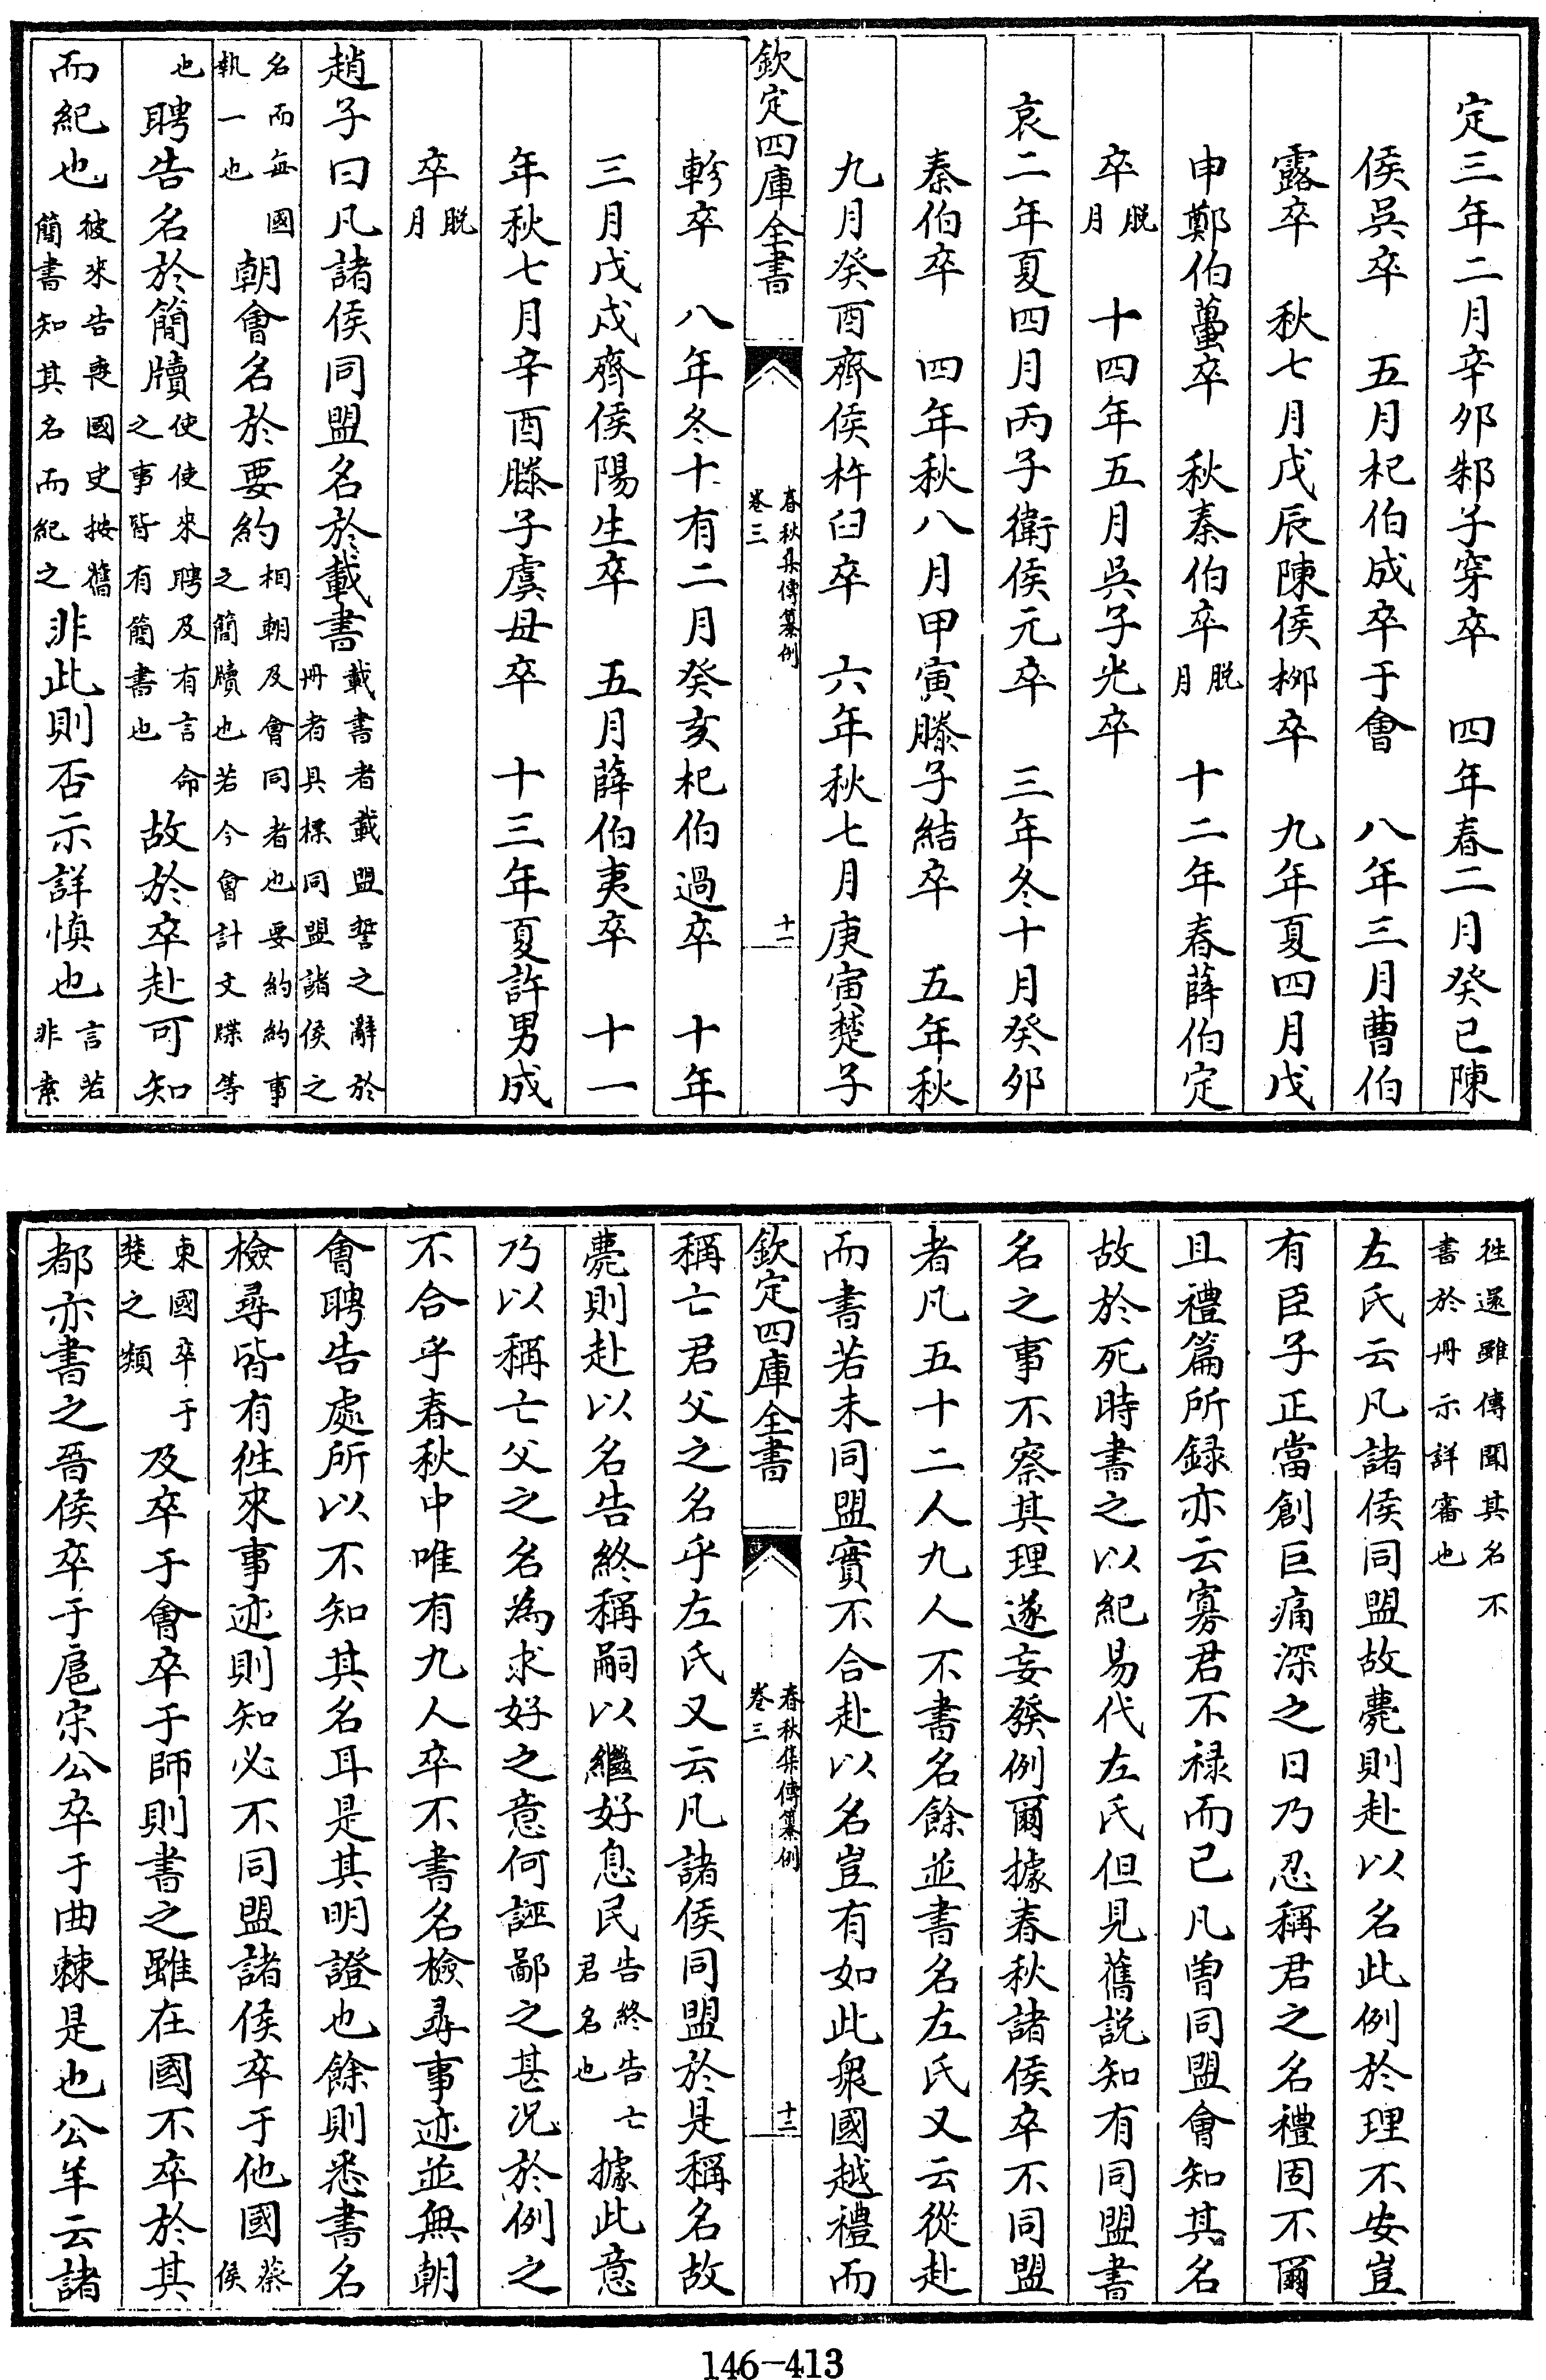 定三年二月辛卯邾子穿卒　四年春二月癸巳陳
侯吳卒　五月杞伯成卒于會　八年三月曹伯
露卒　秋七月戊辰陳侯柳卒　九年夏四月戊
申鄭伯蠆卒　秋秦伯卒脱月　十二年春薛伯定
卒脱月　十四年五月吳子光卒
哀二年夏四月丙子衛侯元卒　三年冬十月癸卯
秦伯卒　四年秋八月甲寅滕子結卒　五年秋
九月癸酉齊侯杵臼卒　六年秋七月庚寅楚子
欽定四庫全書　春秋集傳纂例卷三　十一
軫卒　八年冬十有二月癸亥杞伯過卒　十年
三月戊戌齊侯陽生卒　五月薛伯夷卒　十一
年秋七月辛酉滕子虞母卒　十三年夏許男成
卒脱月
趙子曰凡諸侯同盟名於載書載書者載盟誓之辭於冊者具標同盟諸侯之
名而每國執一也朝會名於要約相朝及會同者也要約約事之簡牘也若今會計文牒等
也聘告名於簡牘使使來聘及有言命之事皆有簡書也故於卒赴可知
而紀也彼來告喪國史按舊簡書知其名而紀之非此則否示詳慎也言若非素
徃還雖傳聞其名不書於冊示詳審也
左氏云凡諸侯同盟故薨則赴以名此例於理不安豈
有臣子正當創巨痛深之日乃忍稱君之名禮固不爾
且禮篇所録亦云寡君不禄而已凡曾同盟會知其名
故於死時書之以紀易代左氏但見舊説知有同盟書
名之事不察其理遂妄發例爾據春秋諸侯卒不同盟
者凡五十二人九人不書名餘並書名左氏又云從赴
而書若未同盟實不合赴以名豈有如此衆國越禮而
欽定四庫全書　春秋集傳纂例卷三　十二
稱亡君父之名乎左氏又云凡諸侯同盟於是稱名故
薨則赴以名告終稱嗣以繼好息民告終告亡君名也據此意
乃以稱亡父之名為求好之意何誣鄙之甚况於例之
不合乎春秋中唯有九人卒不書名檢尋事迹並無朝
會聘告處所以不知其名耳是其明證也餘則悉書名
檢尋皆有徃來事迹則知必不同盟諸侯卒于他國蔡侯
東國卒于楚之類及卒于會卒于師則書之雖在國不卒於其
都亦書之晉侯卒于扈宋公卒于曲棘是也公羊云諸
146-413